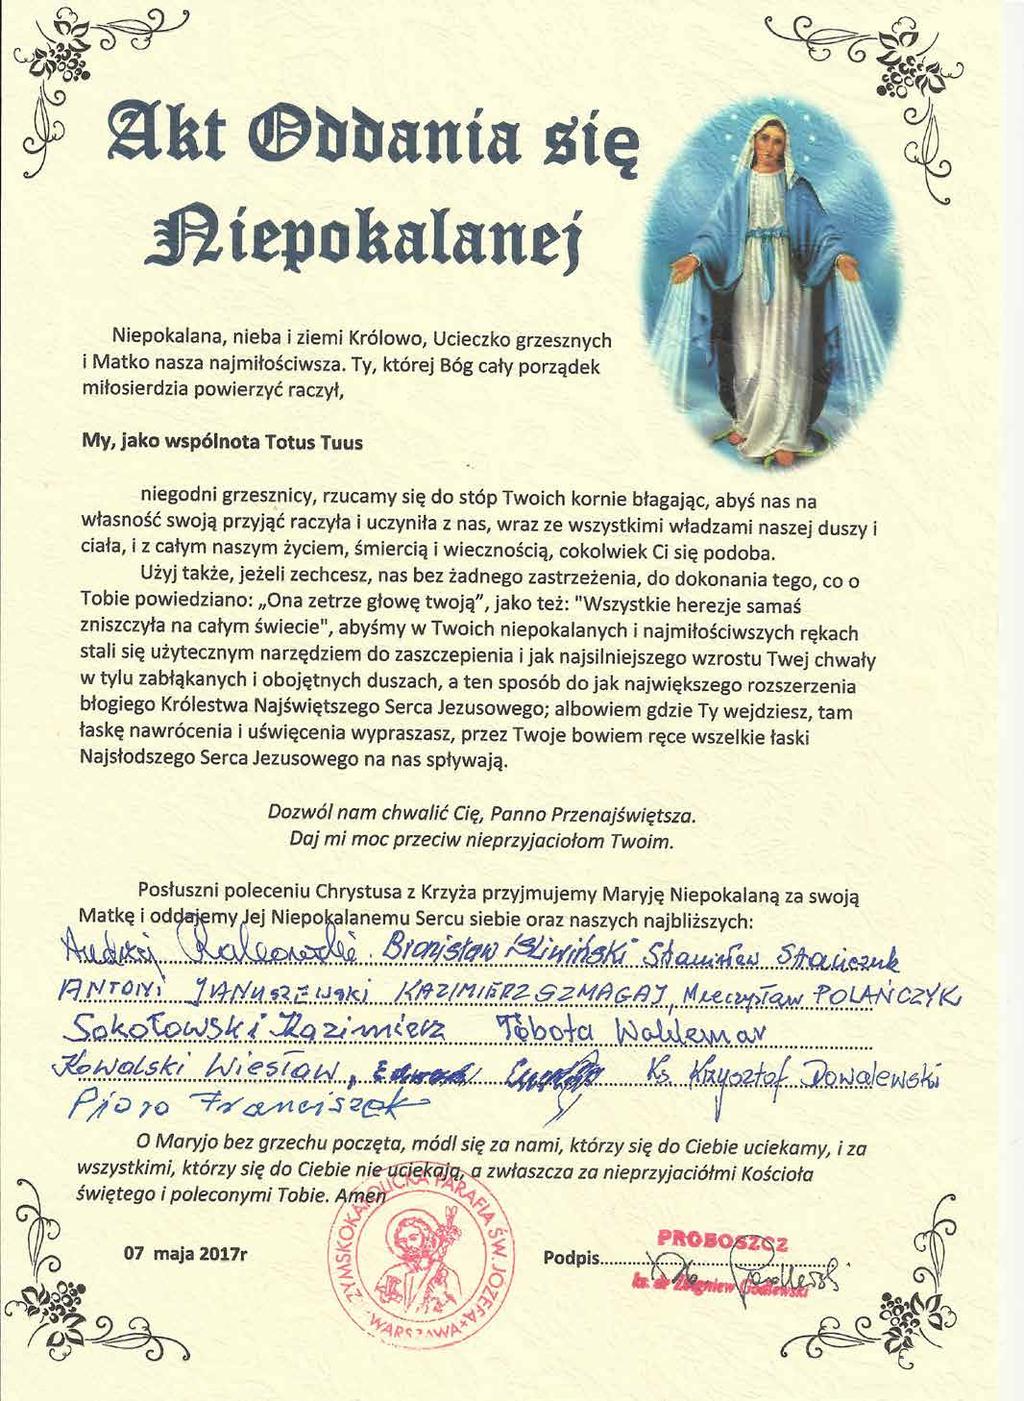 Akt Oddania się
Niepokalanej
Niepokalana, nieba i ziemi Królowo, Ucieczko grzesznych
i Matko nasza najmiłościwsza. Ty, której Bóg cały porządek
miłosierdzia powierzyć raczył,
My, jako wspólnota Totus Tuus
niegodni grzesznicy, rzucamy się do stóp Twoich kornie błagając, abyś nas na
własność swoją przyjąć raczyła i uczyniła z nas, wraz ze wszystkimi władzami naszej duszy i
ciała, i z całym naszym życiem, śmiercią i wiecznością, cokolwiek Ci się podoba.
Użyj także, jeżeli zechcesz, nas bez żadnego zastrzeżenia, do dokonania tego, co o
Tobie powiedziano: „Ona zetrze głowę twoją", jako też: "Wszystkie herezje samaś
zniszczyła na całym świecie", abyśmy w Twoich niepokalanych i najmiłościwszych rękach
stali się użytecznym narzędziem do zaszczepienia i jak najsilniejszego wzrostu Twej chwały
w tylu zabłąkanych i obojętnych duszach, a ten sposób do jak największego rozszerzenia
błogiego Królestwa Najświętszego Serca Jezusowego; albowiem gdzie Ty wejdziesz, tam
łaskę nawrócenia i uświęcenia wypraszasz, przez Twoje bowiem ręce wszelkie łaski
Najsłodszego Serca Jezusowego na nas spływają.
Dozwól nam chwalić Cię, Panno Przenajświętsza.
Daj mi moc przeciw nieprzyjaciołom Twoim.
Posłuszni poleceniu Chrystusa z Krzyża przyjmujemy Maryję Niepokalaną za swoją
Matkę i oddajemy Jej Niepokalanemu Sercu siebie oraz naszych najbliższych:
Andrzej Bronisław Śliwiński Stanisław
ANTONI JANUSZEWSKI KAZIMIERZ SZMAGAJ Mieczysław POLAŃCZYK
Sokołowski Kazimierz Tobota Waldemar
Kowalski Wiesław, Ks. Krzysztof
Pioro Franciszek
O Maryjo bez grzechu poczęta, módl się za nami, którzy się do Ciebie uciekamy, i za
wszystkimi, którzy się do Ciebie nie uciekają, a zwłaszcza za nieprzyjaciółmi Kościoła
świętego i poleconymi Tobie. Amen
RZYMSKOKATOLICKA PARAFIA ŚW. JÓZEFA
WARSZAWA
07 maja 2017r
Podpis
PROBOSZCZ
ks. dr Zbigniew Godlewski